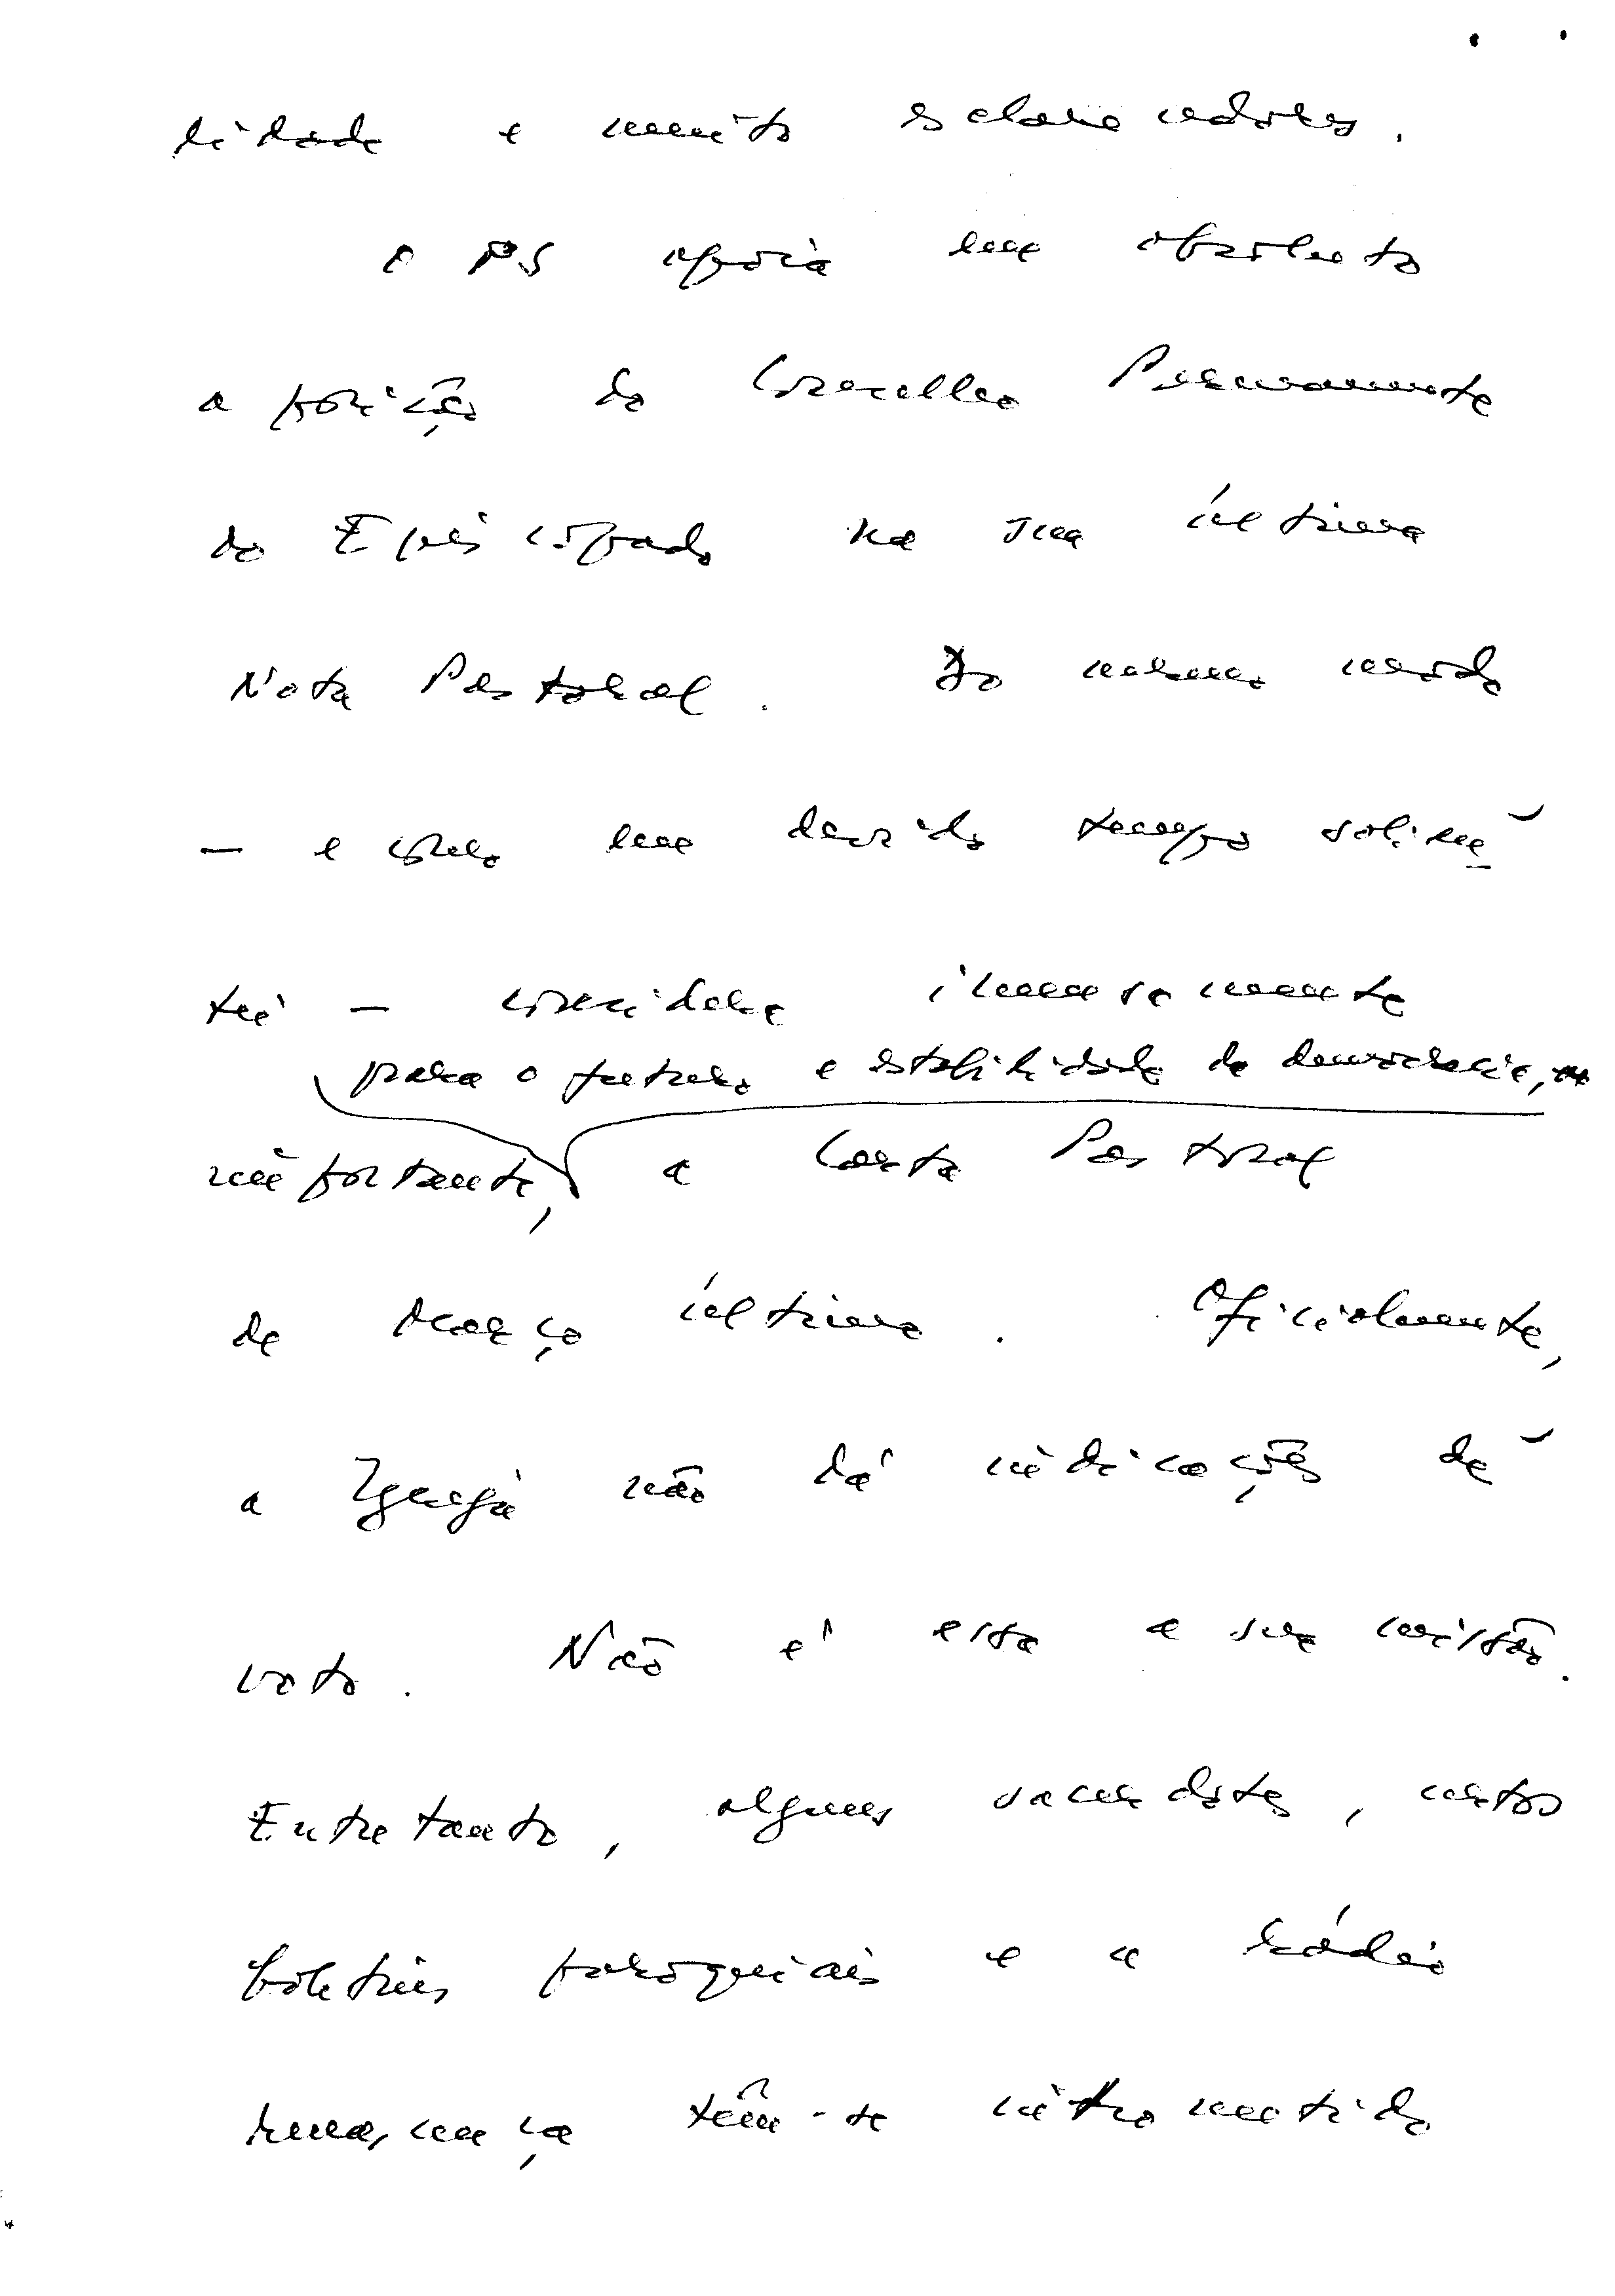 lidade e muito esclarecedores.
O PS apoia em absoluto
a posição do Conselho Permanente
do Episcopado na sua última
Nota Pastoral. Do mesmo modo
— e como em devido tempo salien-
tei — considera imensamente
para o futuro e estabilidade da democracia,
importante, a Carta Pastoral
de Março última. Oficialmente,
a Igreja não dá indicações de
voto. Não é essa a sua missão.
Entretanto, alguns sacerdotes, certos
boletins paroquiais e a rádio
renascença têm-se intrometido